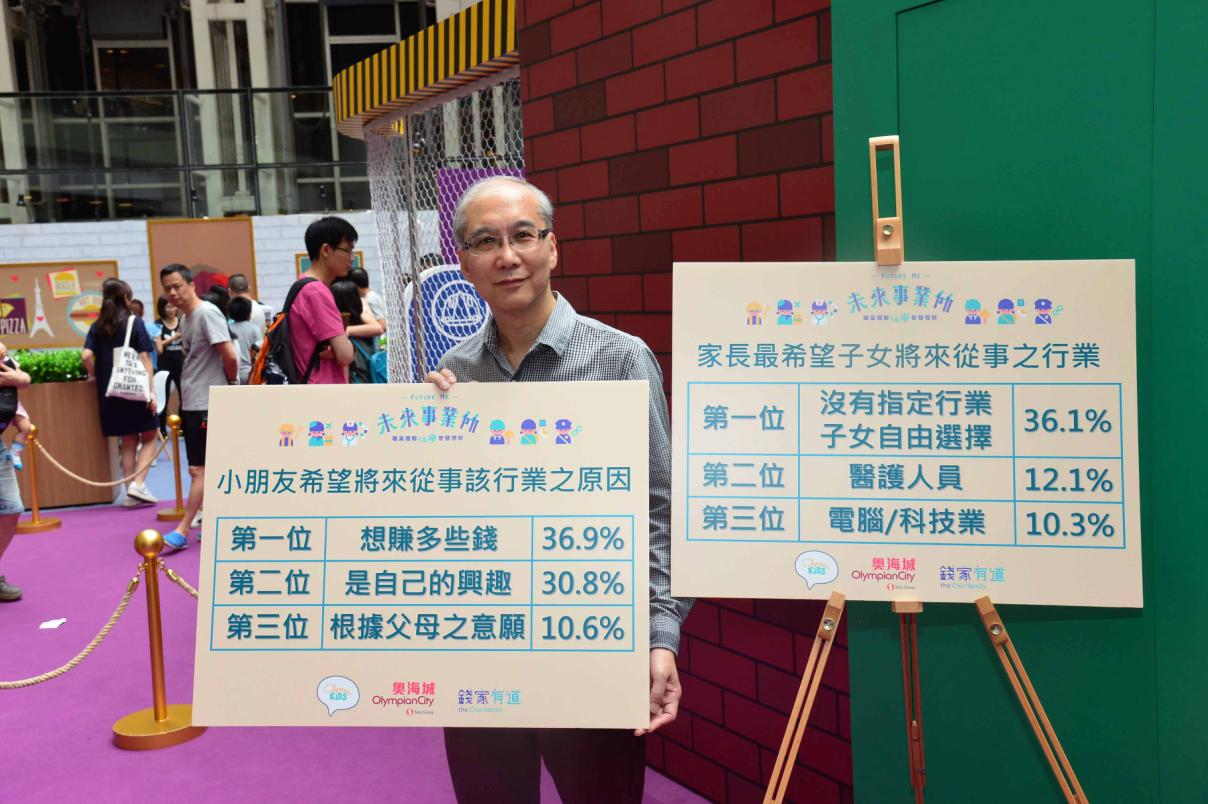 PIZZA
NEED
THIS
ANYTHING
FOR
GRANTED.
FUTURE ME
未來事業所
職業體驗玩學智慧理財
小朋友希望將來從事該行業之原因
第一位 想賺多些錢 36.9%
第二位 是自己的興趣 30.8%
第三位 根據父母之意願 10.6%
KIDS
奧海城
OlympianCity
Sino Group
錢家有道
the Chin family
FUTURE ME
未來事業所
職業體驗玩學智慧理財
家長最希望子女將來從事之行業
第一位 沒有指定行業 36.1%
子女自由選擇
第二位 醫護人員 12.1%
第三位 電腦/科技業 10.3%
KIDS
奧海城
OlympianCity
Sino Group
錢家有道
the Chin family